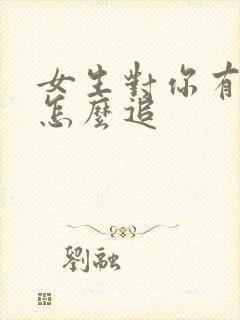 女生對你有
怎麼追
劉融